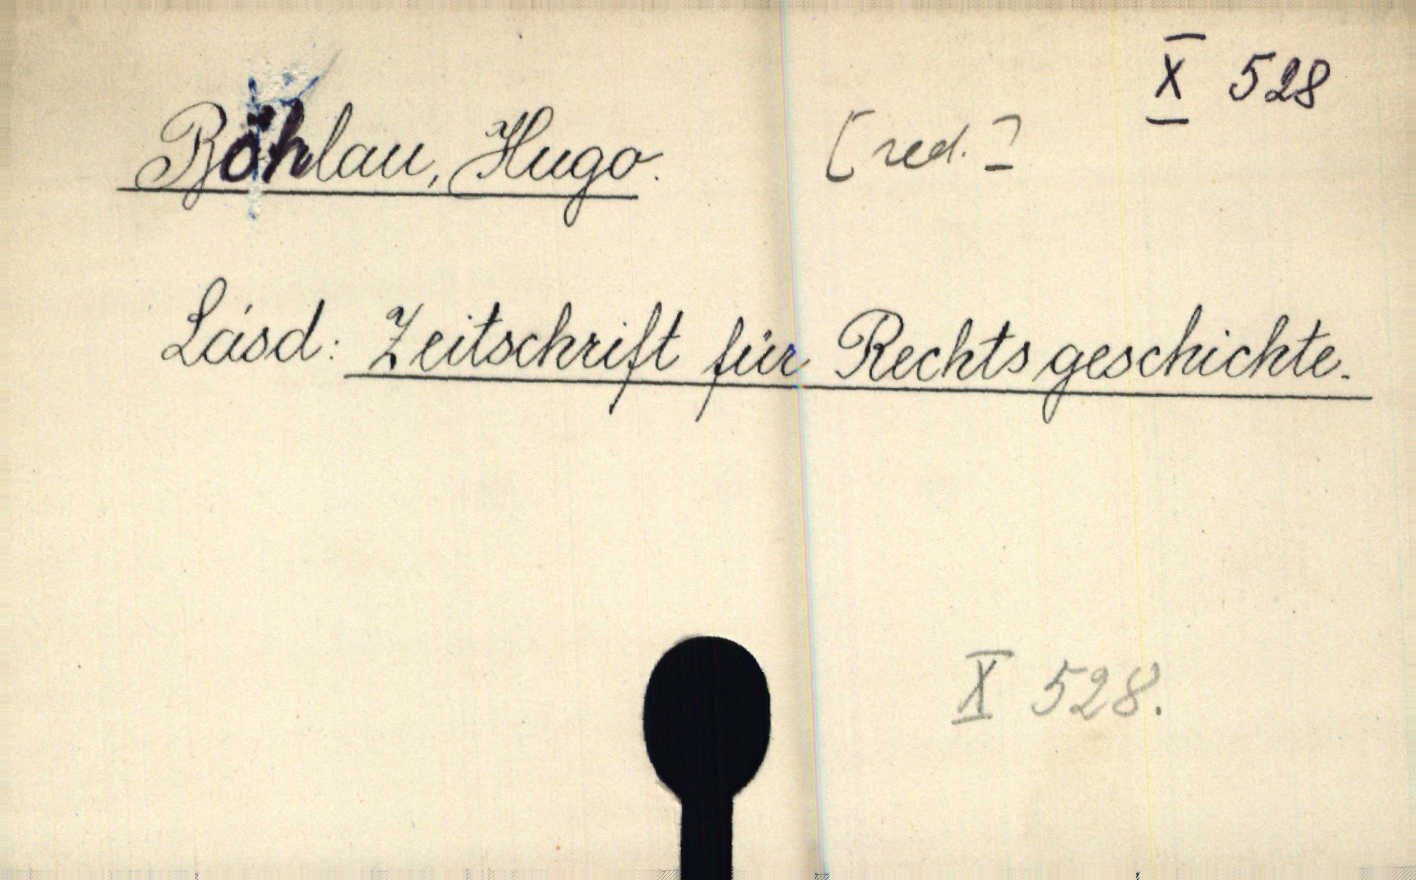 X 528
Böhlau, Hugo. [red.]
Lásd: Zeitschrift für Rechtsgeschichte.
X 528.